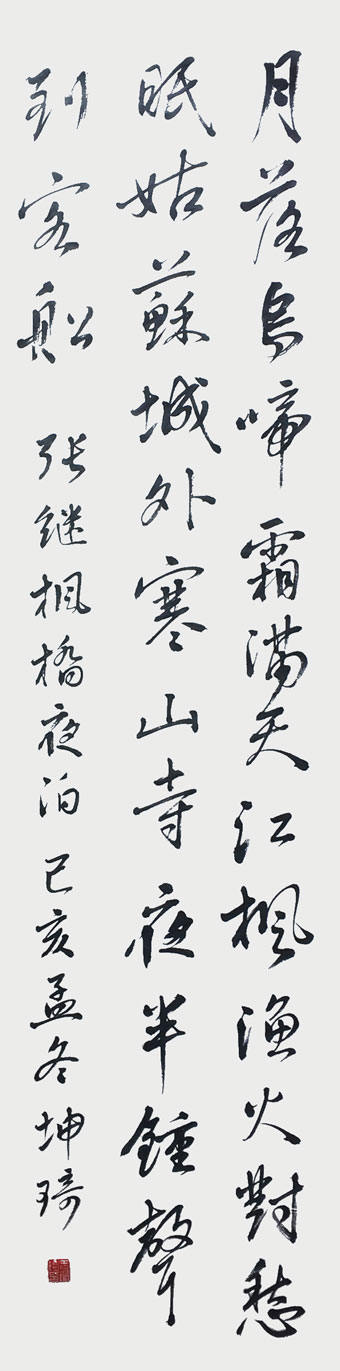 月落烏啼霜满天江枫渔火對愁
眠姑蘇城外寒山寺夜半鍾聲
到客船 张继枫橋夜泊 己亥孟冬坤琦